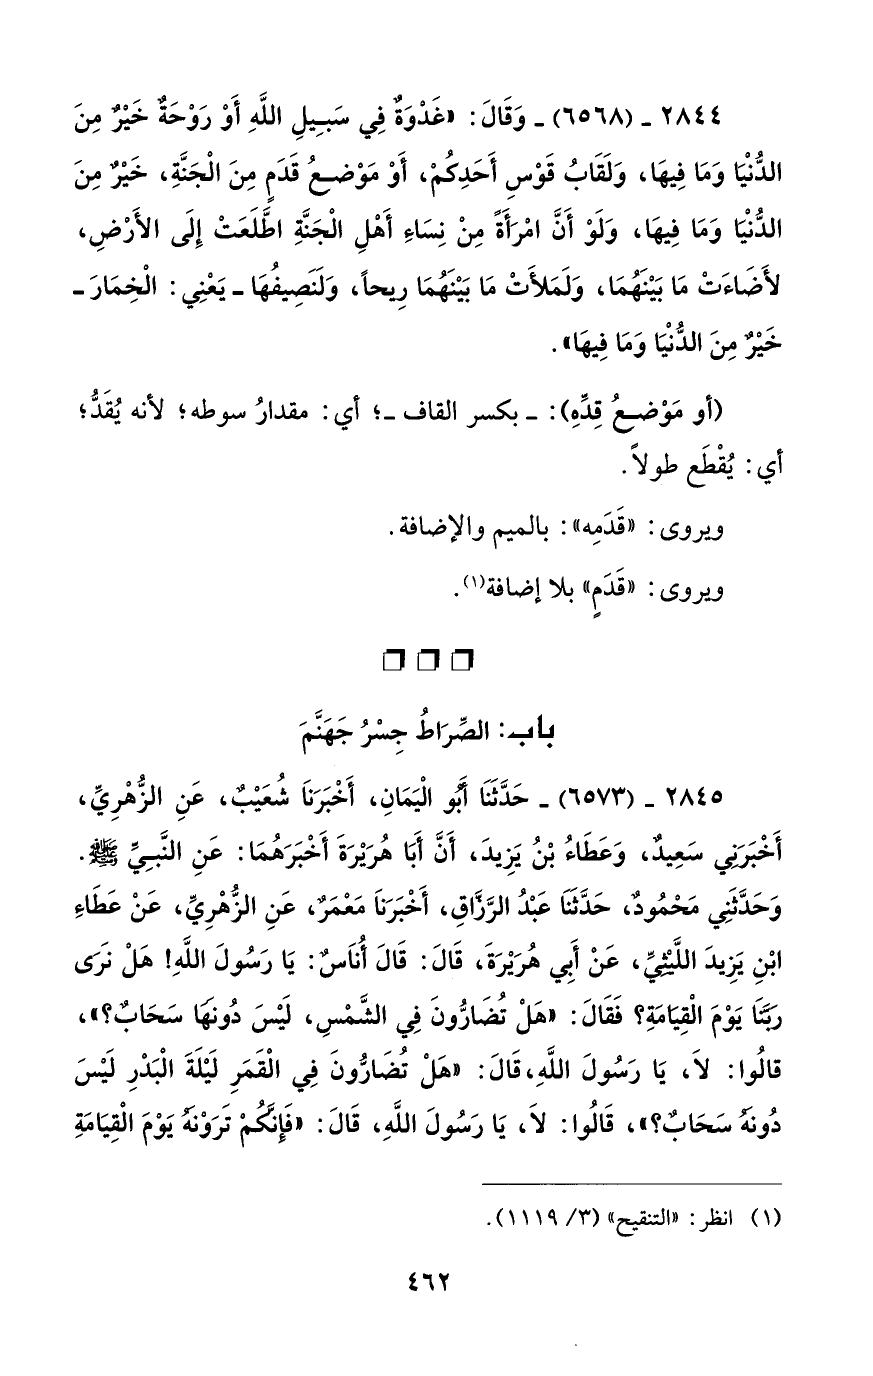 ٢٨٤٤ ـ (٦٥٦٨) ـ وَقَالَ: «غَدْوَةٌ فِي سَبِيلِ اللَّهِ أَوْ رَوْحَةٌ خَيْرٌ مِنَ
الدُّنْيَا وَمَا فِيهَا، وَلَقَابُ قَوْسِ أَحَدِكُمْ، أَوْ مَوْضِعُ قَدَمٍ مِنَ الْجَنَّةِ، خَيْرٌ مِنَ
الدُّنْيَا وَمَا فِيهَا، وَلَوْ أَنَّ امْرَأَةً مِنْ نِسَاءِ أَهْلِ الْجَنَّةِ اطَّلَعَتْ إِلَى الأَرْضِ،
لأَضَاءَتْ مَا بَيْنَهُمَا، وَلَمَلأَتْ مَا بَيْنَهُمَا رِيحاً، وَلَنَصِيفُهَا ـ يَعْنِي: الْخِمَارَ ـ
خَيْرٌ مِنَ الدُّنْيَا وَمَا فِيهَا».
(أو مَوْضعُ قِدِّهِ): ـ بكسر القاف ـ؛ أي: مقدارُ سوطه؛ لأنه يُقَدُّ؛
أي: يُقْطَع طولاً.
ويروى: «قَدَمِه»: بالميم والإضافة.
ويروى: «قَدَمٍ» بلا إضافة(١).
باب: الصِّرَاطُ جِسْرُ جَهَنَّمَ
٢٨٤٥ ـ (٦٥٧٣) ـ حَدَّثَنَا أَبُو الْيَمَانِ، أَخْبَرَنَا شُعَيْبٌ، عَنِ الزُّهْرِيِّ،
أَخْبَرَنِي سَعِيدٌ، وَعَطَاءُ بْنُ يَزِيدَ، أَنَّ أَبَا هُرَيْرَةَ أَخْبَرَهُمَا: عَنِ النَّبِيِّ ﷺ.
وَحَدَّثَنِي مَحْمُودٌ، حَدَّثَنَا عَبْدُ الرَّزَّاقِ، أَخْبَرَنَا مَعْمَرٌ، عَنِ الزُّهْرِيِّ، عَنْ عَطَاءِ
ابْنِ يَزِيدَ اللَّيْثِيِّ، عَنْ أَبِي هُرَيْرَةَ، قَالَ: قَالَ أُنَاسٌ: يَا رَسُولَ اللَّهِ! هَلْ نَرَى
رَبَّنَا يَوْمَ الْقِيَامَةِ؟ فَقَالَ: «هَلْ تُضَارُّونَ فِي الشَّمْسِ، لَيْسَ دُونَهَا سَحَابٌ؟»،
قَالُوا: لاَ، يَا رَسُولَ اللَّهِ،قَالَ: «هَلْ تُضَارُّونَ فِي الْقَمَرِ لَيْلَةَ الْبَدْرِ لَيْسَ
دُونَهُ سَحَابٌ؟»، قَالُوا: لاَ، يَا رَسُولَ اللَّهِ، قَالَ: «فَإِنَّكُمْ تَرَوْنَهُ يَوْمَ الْقِيَامَةِ
(١) انظر: «التنقيح» (٣/ ١١١٩).
٤٦٢